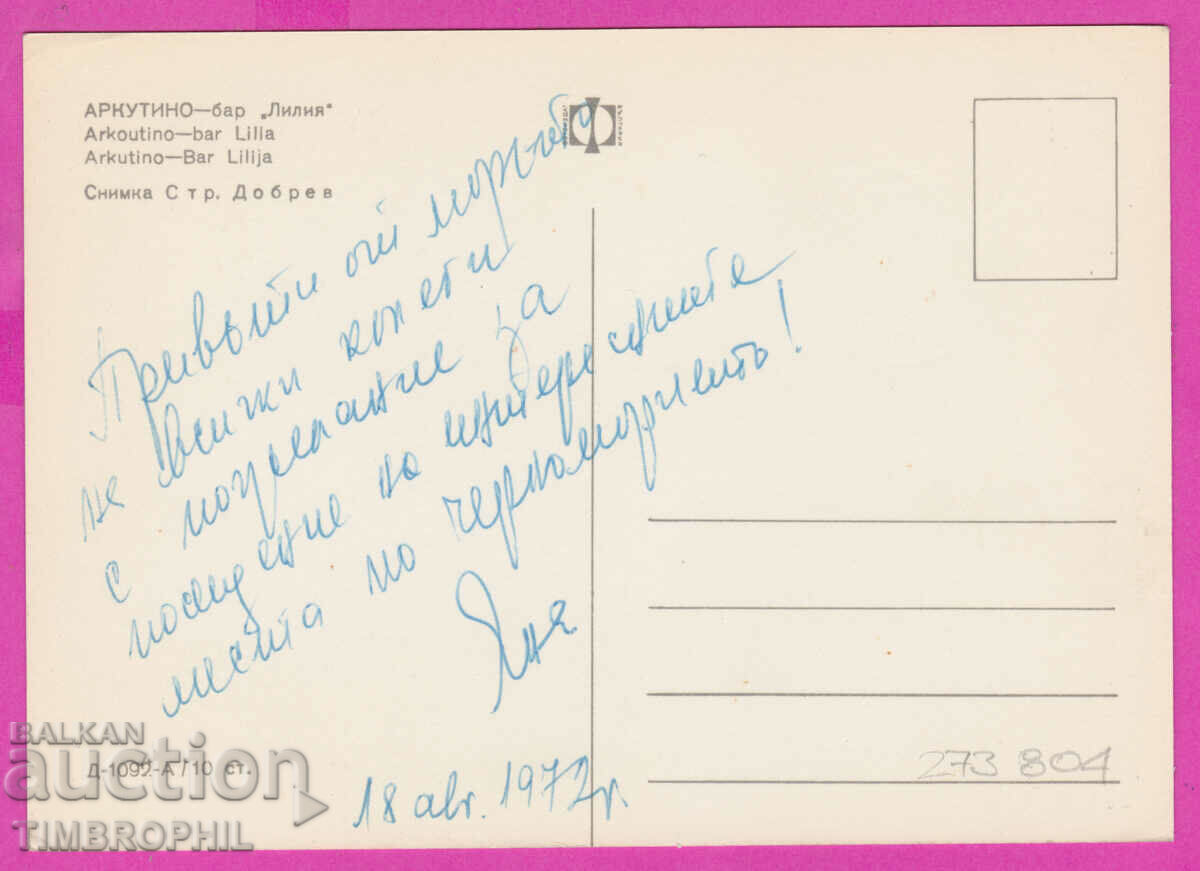 АРКУТИНО—бар „Лилия"
Arkoutino—bar Lilia
Arkutino—Bar Lilija
Снимка Стр. Добрев
БЪЛГАРСКИ
ФОТОИЗДАТ
Привети от морето
на всички колеги
с пожелание за
посещение на интересните
места по черноморието!
Яна
18 авг. 1972 г.
Д-1092-А / 10 ст.
273 804
BALKAN
auction
TIMBROPHIL